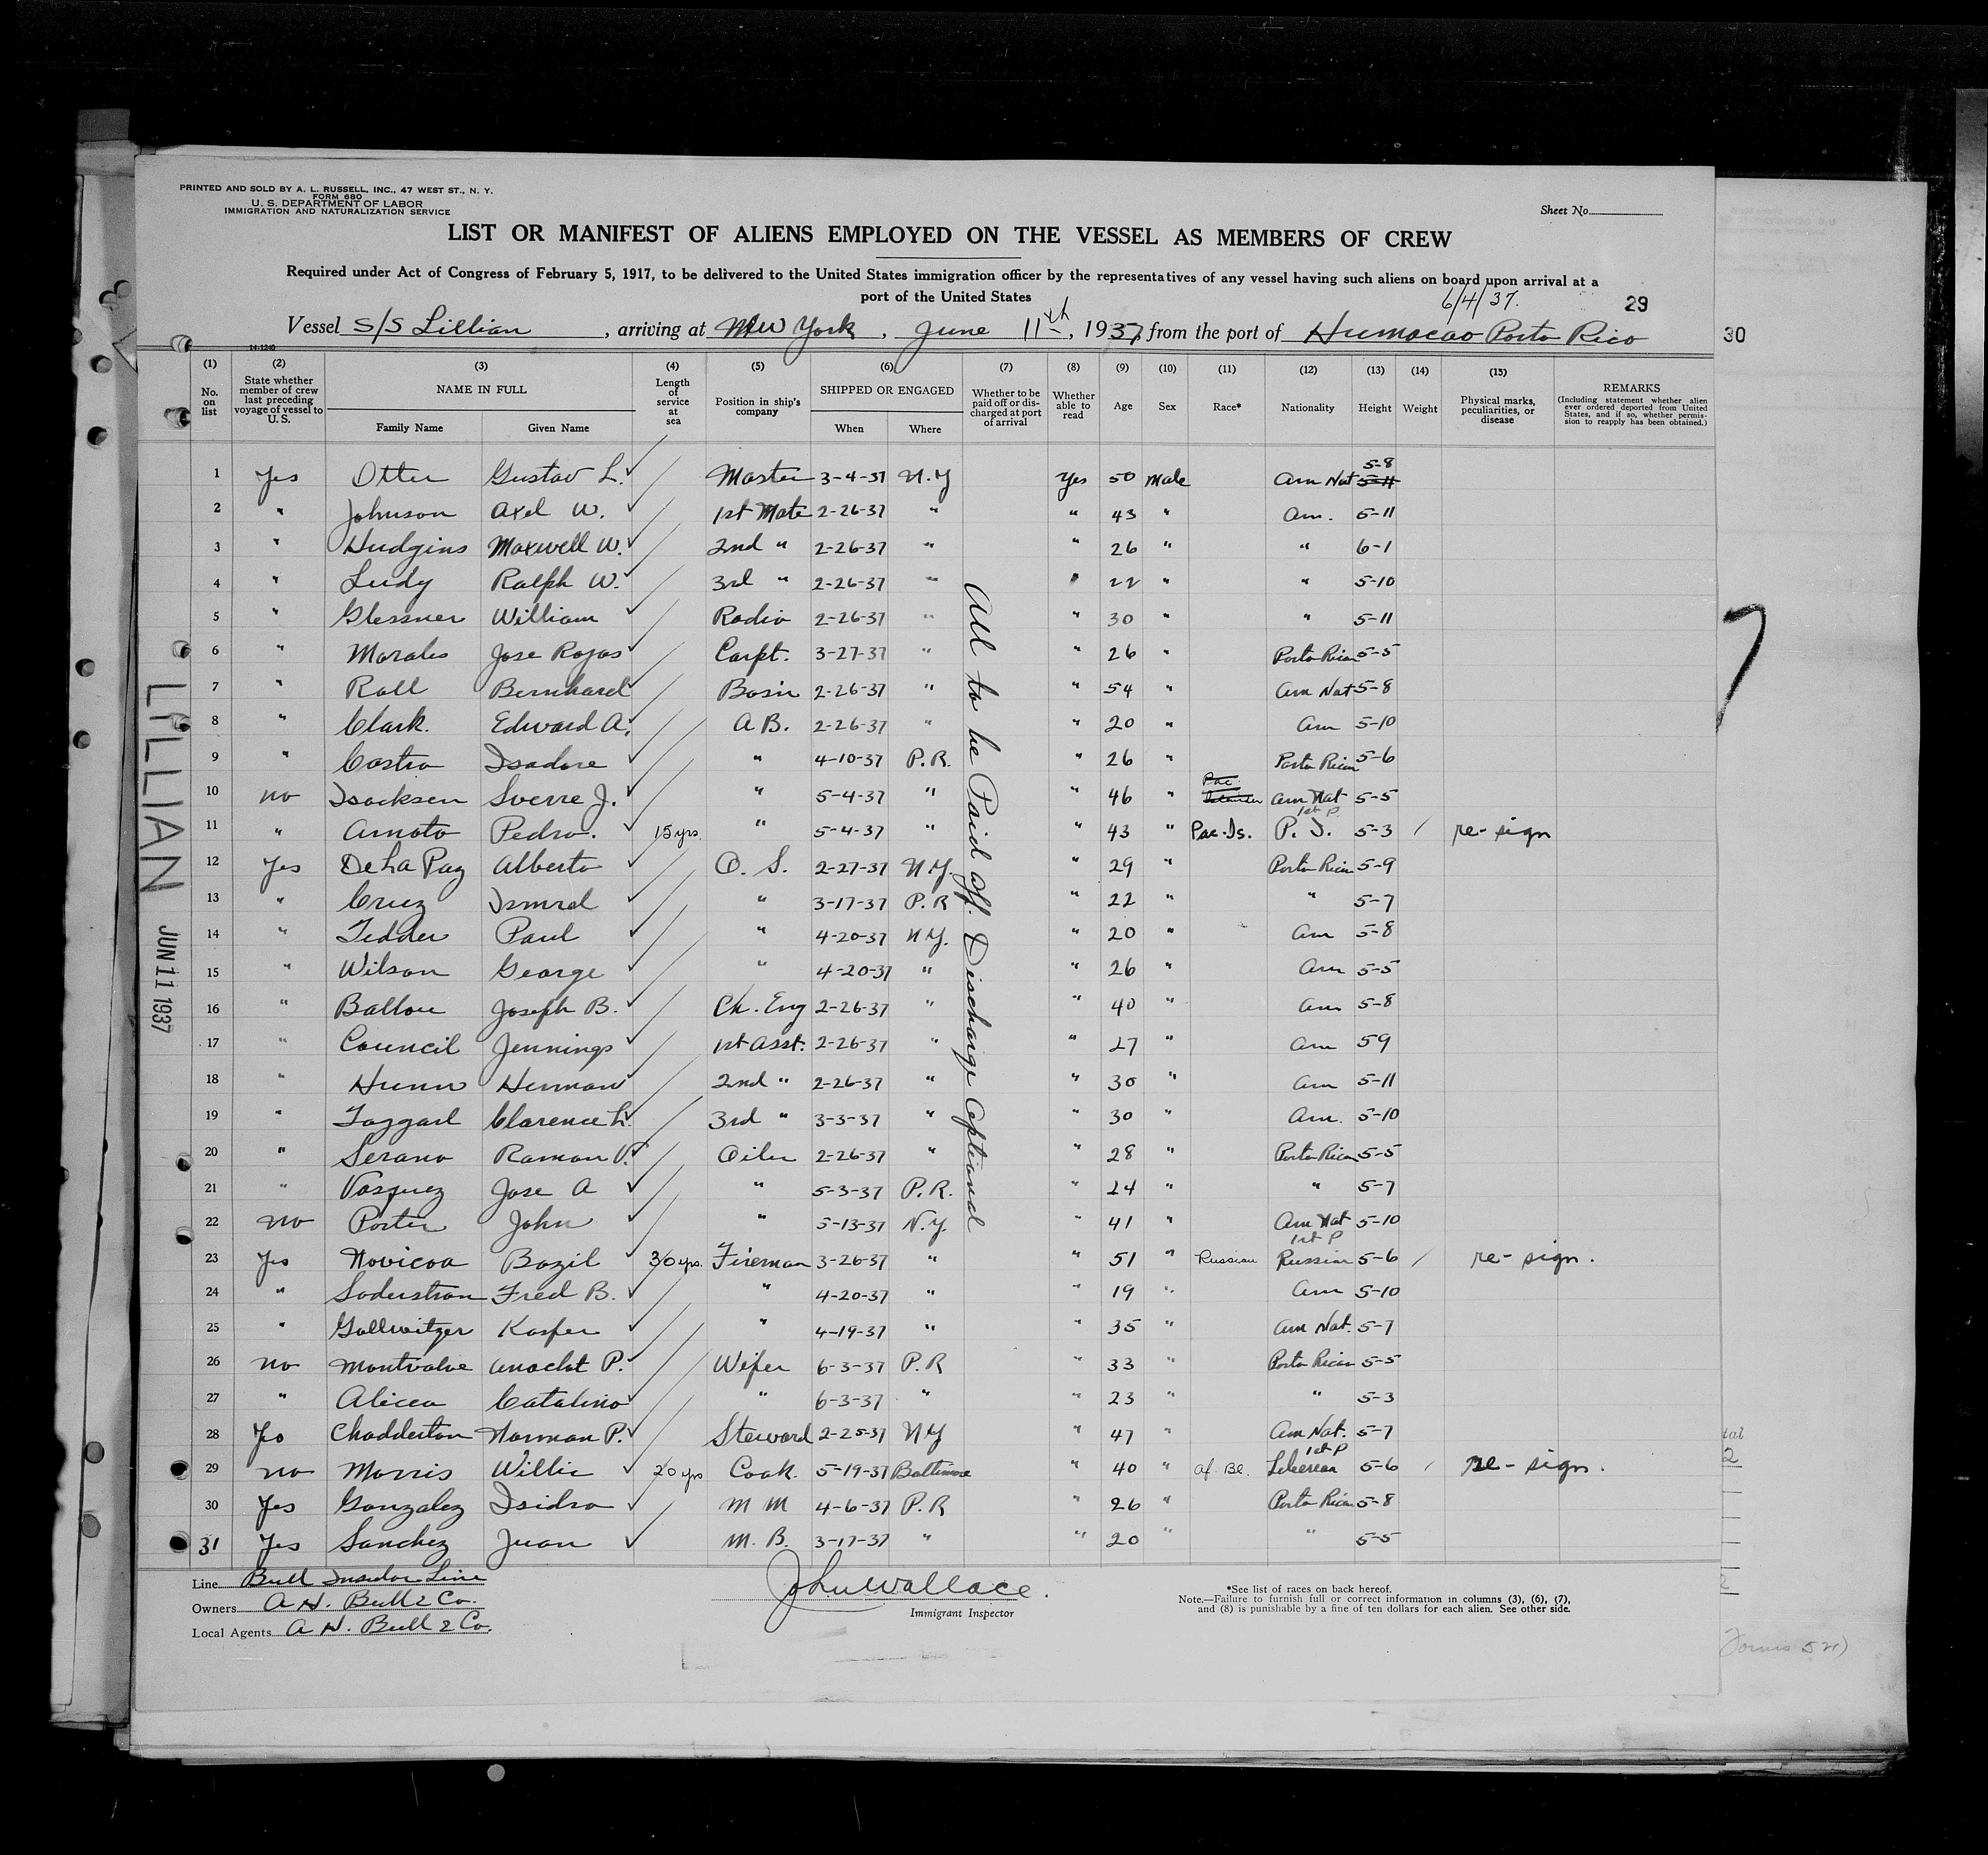 PRINTED AND SOLD BY A. L. RUSSELL, INC., 47 WEST ST., N. Y.
FORM 680
U. S. DEPARTMENT OF LABOR
IMMIGRATION AND NATURALIZATION SERVICE
Sheet No.
LIST OR MANIFEST OF ALIENS EMPLOYED ON THE VESSEL AS MEMBERS OF CREW
Required under Act of Congress of February 5, 1917, to be delivered to the United States immigration officer by the representatives of any vessel having such aliens on board upon arrival at a
port of the United States
6/4/37.
29
30
Vessel S/S Lillian, arriving at New York, June 11th, 1937, from the port of Humacao Porto Rico
14-1240
(1) (2) (3) (4) (5) (6) (7) (8) (9) (10) (11) (12) (13) (14) (15)
No. on list
State whether member of crew last preceding voyage of vessel to U. S.
NAME IN FULL
Family Name Given Name
Length of service at sea
Position in ship's company
SHIPPED OR ENGAGED
When Where
Whether to be paid off or discharged at port of arrival
Whether able to read
Age
Sex
Race*
Nationality
Height
Weight
Physical marks, peculiarities, or disease
REMARKS
(Including statement whether alien ever ordered deported from United States, and if so, whether permission to reapply has been obtained.)
1 Yes Otter Gustav L. Master 3-4-37 N.Y Yes 50 Male Am Nat 5-8 5-11
2 " Johnson Axel W. 1st Mate 2-26-37 " " 43 " Am. 5-11
3 " Hudgins Maxwell W. 2nd " 2-26-37 " " 26 " " 6-1
4 " Ludy Ralph W. 3rd " 2-26-37 " " 22 " " 5-10
5 " Glessner William Radio 2-26-37 " " 30 " " 5-11
6 " Morales Jose Rojas Carpt. 3-27-37 " " 26 " Porto Rican 5-5
7 " Rall Bernhard Bosn 2-26-37 " " 54 " Am Nat 5-8
8 " Clark. Edward A. A B. 2-26-37 " " 20 " Am 5-10
9 " Castro Isadore " 4-10-37 P.R. " 26 " Porto Rican 5-6
10 no Isacksen Sverre J. " 5-4-37 " " 46 " Pac. Islander Am Nat 5-5
11 " Amoto Pedro. 15 yrs. " 5-4-37 " " 43 " Pac. Is. 1st P P. I. 5-3 / re-sign
12 Yes De La Paz Alberto O. S. 2-27-37 N.Y. " 29 " Porto Rican 5-9
13 " Cruz Ismael " 3-17-37 P.R " 22 " " 5-7
14 " Tedder Paul " 4-20-37 N.Y. " 20 " Am 5-8
15 " Wilson George " 4-20-37 " " 26 " Am 5-5
16 " Ballou Joseph B. Ch. Eng 2-26-37 " " 40 " Am 5-8
17 " Council Jennings 1st Asst. 2-26-37 " " 27 " Am 59
18 " Hunn Herman 2nd " 2-26-37 " " 30 " Am 5-11
19 " Taggart Clarence L. 3rd " 3-3-37 " " 30 " Am. 5-10
20 " Serano Ramon V. Oiler 2-26-37 " " 28 " Porto Rican 5-5
21 " Vasquez Jose A " 5-3-37 P.R. " 24 " " 5-7
22 no Porter John " 5-13-37 N.Y. " 41 " Am Nat 5-10
23 Yes Novicoa Bazil 30 yrs. Fireman 3-26-37 " " 51 " Russian 1st P Russian 5-6 / re-sign.
24 " Soderstrom Fred B. " 4-20-37 " " 19 " Am 5-10
25 " Gollwitzer Kasper " 4-19-37 " " 35 " Am Nat. 5-7
26 no Montvalve Anaclet P. Wiper 6-3-37 P.R " 33 " Porto Rican 5-5
27 " Alicea Catalino " 6-3-37 " " 23 " " 5-3
28 Yes Chadderton Norman P. Steward 2-25-37 NY " 47 " Am Nat. 5-7
29 no Morris Willie 20 yrs Cook. 5-19-37 Baltimore " 40 " Af. Bl. 1st P Liberean 5-6 / re-sign.
30 Yes Gonzalez Isidro M M 4-6-37 P.R " 26 " Porto Rican 5-8
31 Yes Sanchez Juan M. B. 3-17-37 " " 20 " " 5-5
All to be Paid off. Discharge Optional
LILLIAN JUN 11 1937
Line Bull Insular Line
Owners A H. Bull & Co.
Local Agents A H. Bull & Co.
John Wallace.
Immigrant Inspector
*See list of races on back hereof.
Note.—Failure to furnish full or correct information in columns (3), (6), (7),
and (8) is punishable by a fine of ten dollars for each alien. See other side.
tal
2